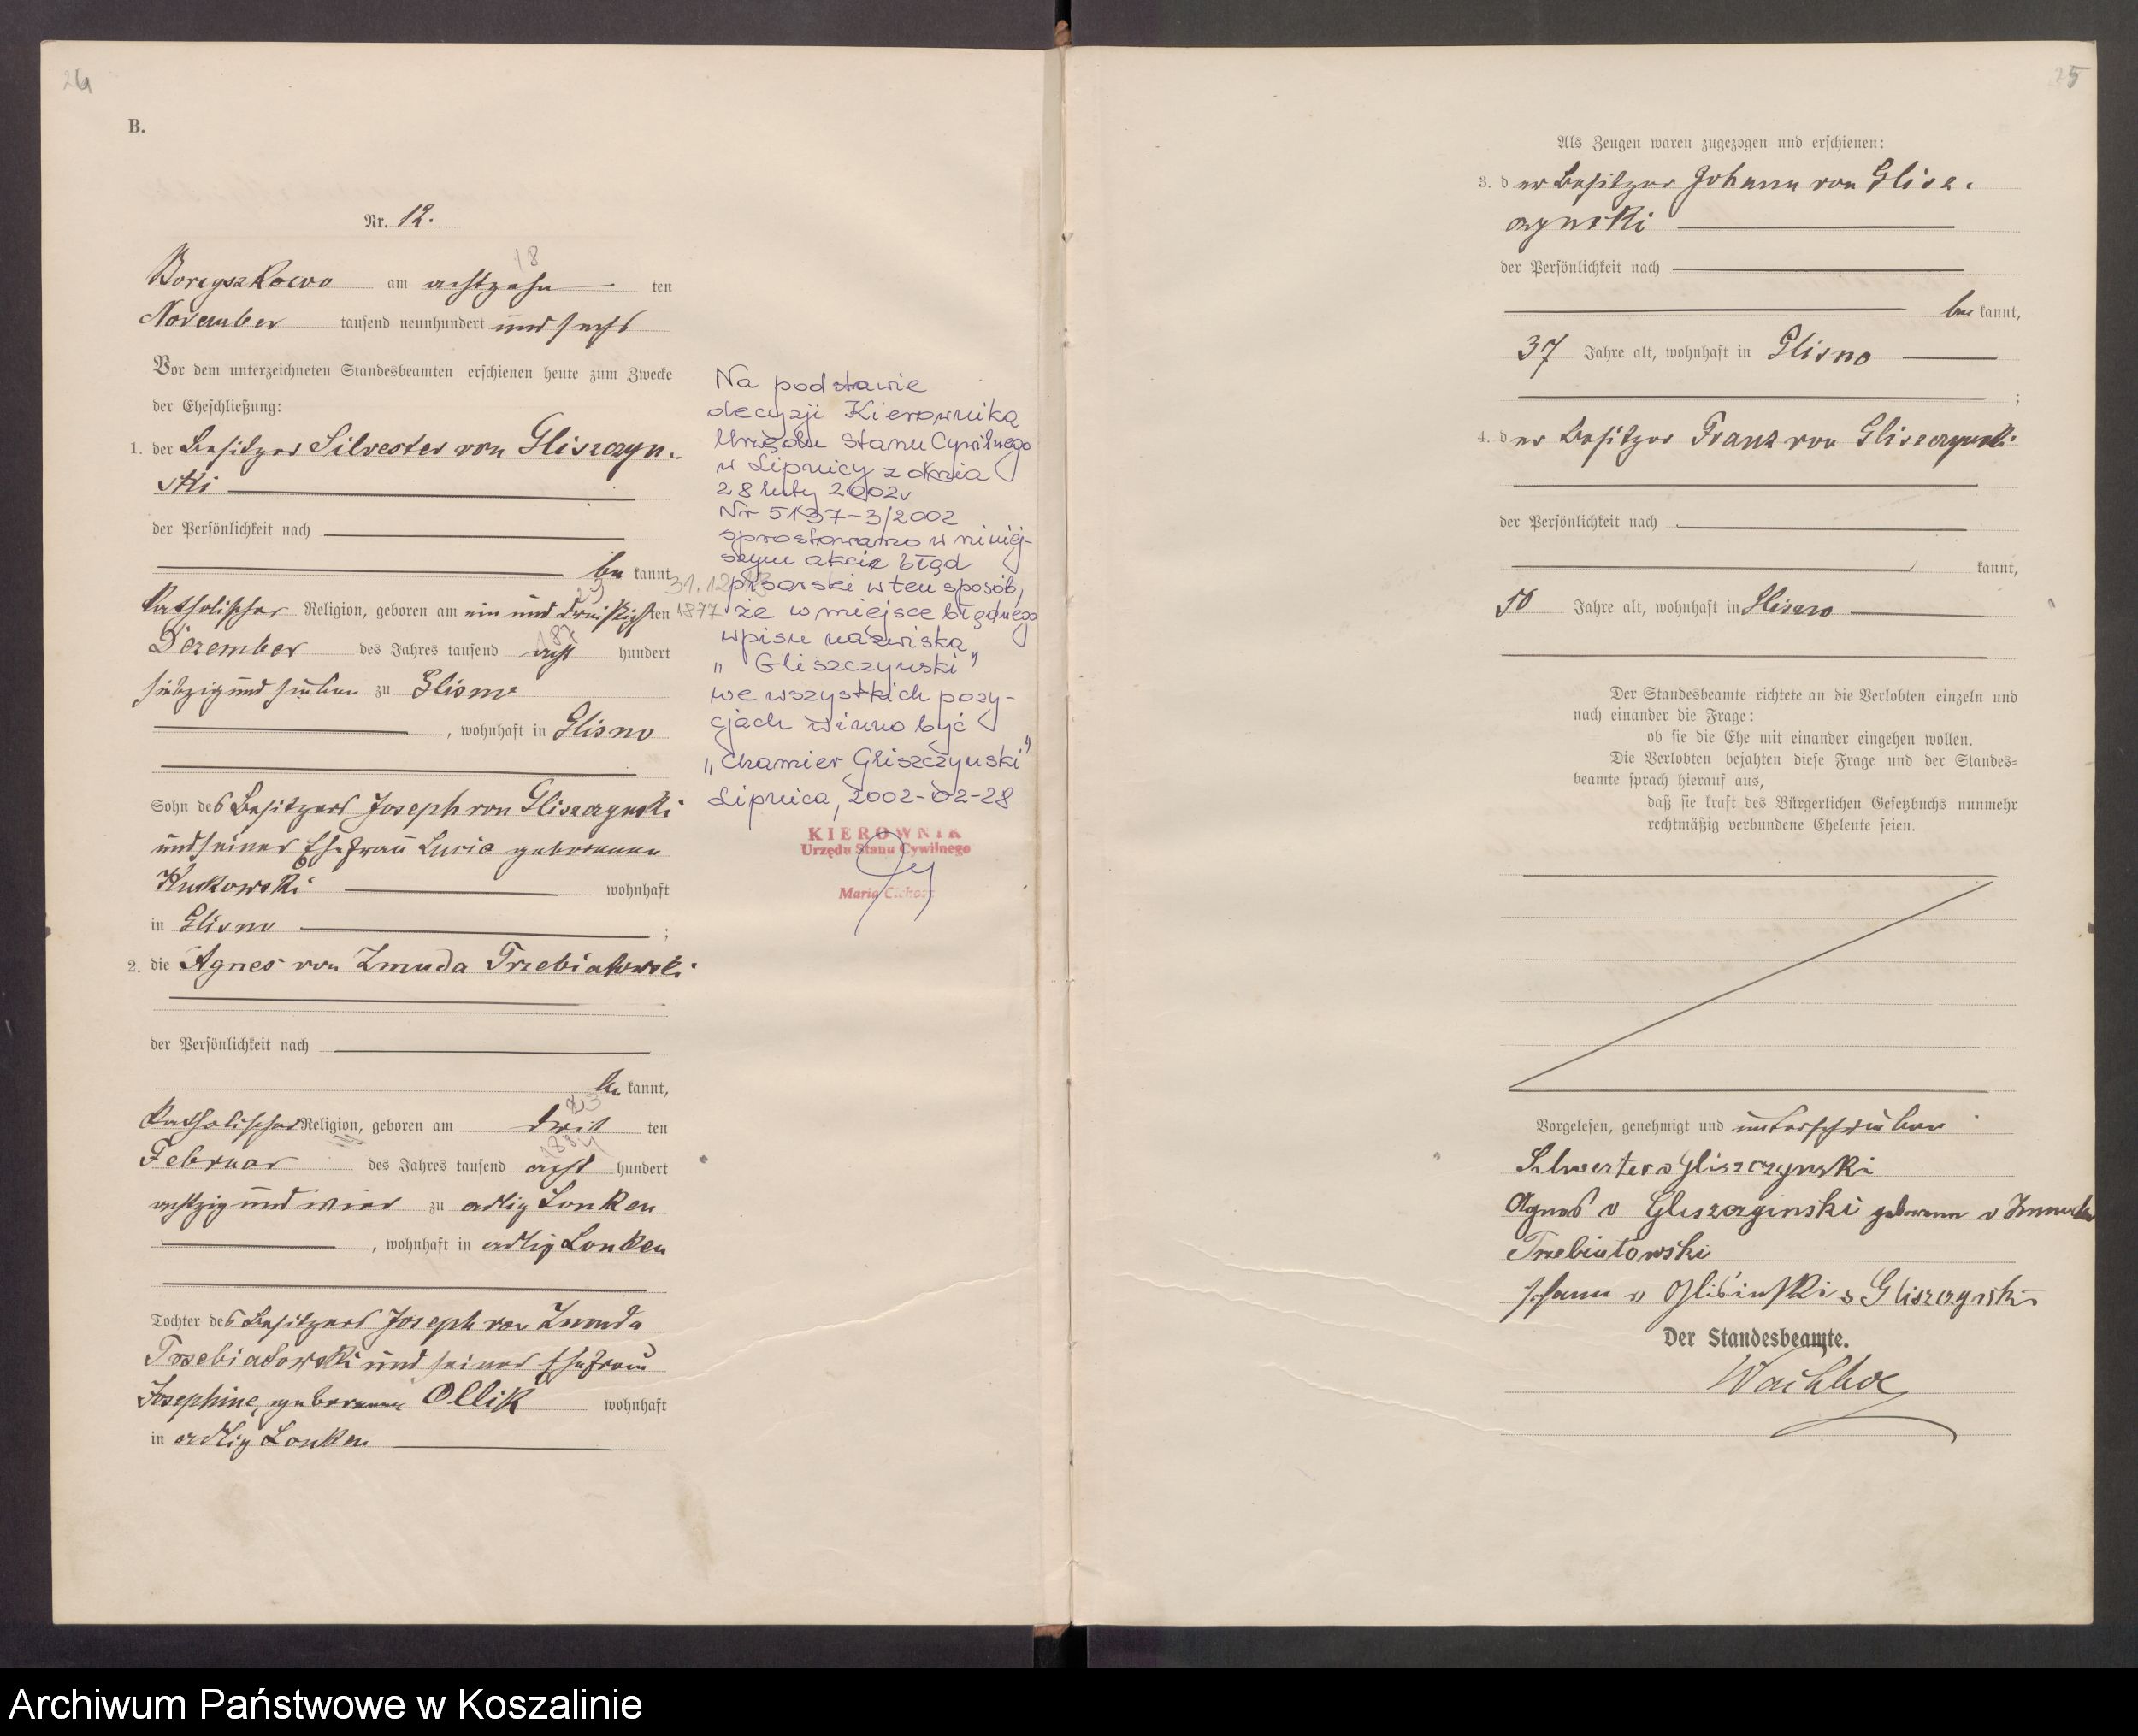 24
B.
Nr. 12.
18
Borzyszkowo am achtzehn ten
November tausend neunhundert und sechs
Vor dem unterzeichneten Standesbeamten erschienen heute zum Zwecke
der Eheschließung:
1. der Besitzer Silvester von Gliszczyn-
ski
der Persönlichkeit nach
be kannt,
katholischer Religion, geboren am ein und dreißigsten
Dezember des Jahres tausend acht hundert
siebzig und sieben zu Glisno
, wohnhaft in Glisno
Sohn des Besitzers Joseph von Gliszczynski
und seiner Ehefrau Lucia geborenen
Kuskowski wohnhaft
in Glisno ;
2. die Agnes von Zmuda Trzebiatowski
der Persönlichkeit nach
be kannt,
katholischer Religion, geboren am drei ten
Februar des Jahres tausend acht hundert
achtzig und vier zu adlig Lonken
, wohnhaft in adlig Lonken
Tochter des Besitzers Joseph von Zmuda
Trzebiatowski und seiner Ehefrau
Josephine, geborenen Ollik wohnhaft
in adlig Lonken
31.12
1877
Na podstawie
decyzji Kierownika
Urzędu Stanu Cywilnego
w Lipnicy z dnia
28 luty 2002r
Nr 5137-3/2002
sprostowano w niniej-
szym akcie błąd
pisarski w ten sposób,
że w miejsce błędnego
wpisu nazwiska
„Gliszczynski”
we wszystkich pozy-
cjach winno być
„Chamier Gliszczynski”
Lipnica, 2002-02-28
KIEROWNIK
Urzędu Stanu Cywilnego
Maria
25
Als Zeugen waren zugezogen und erschienen:
3. der Besitzer Johann von Glisz-
czynski
der Persönlichkeit nach
be kannt,
37 Jahre alt, wohnhaft in Glisno
;
4. der Besitzer Franz von Gliszczynski
der Persönlichkeit nach
kannt,
50 Jahre alt, wohnhaft in Glisno
Der Standesbeamte richtete an die Verlobten einzeln und
nach einander die Frage:
ob sie die Ehe mit einander eingehen wollen.
Die Verlobten bejahten diese Frage und der Standes-
beamte sprach hierauf aus,
daß sie kraft des Bürgerlichen Gesetzbuchs nunmehr
rechtmäßig verbundene Eheleute seien.
Vorgelesen, genehmigt und unterschrieben
Silwester v Gliszczynski
Agnes v Gliszczginski geborene v Zmuda
Trzebiatowski
Johann v Glisinski v Gliszczynski
Der Standesbeamte.
Archiwum Państwowe w Koszalinie